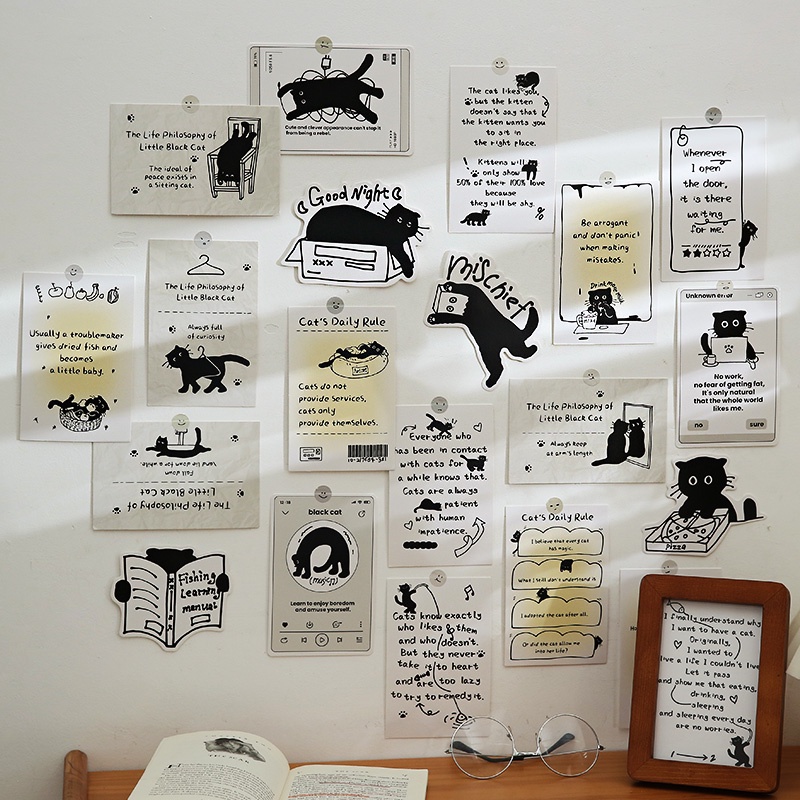 Cute and clever appearance can't stop it
from being a rebel.
The Life Philosophy of
Little Black Cat
The ideal of
peace exists in
a sitting cat.
The cat likes you,
but the kitten
doesn't say that
the kitten wants you
to sit in
the right place.
Kittens will
only show
50% of their 100% love
because
they will be shy.
%
Whenever
I open
the door,
it is there
waiting
for me.
Good Night
xxx
Be arrogant
and don't panic
when making
mistakes.
mischief
The Life Philosophy of
Little Black Cat
Always full
of curiosity
Usually a troublemaker
gives dried fish and
becomes
a little baby.
Cat's Daily Rule
Cats do not
provide services,
cats only
provide themselves.
Unknown error
No work,
no fear of getting fat,
It's only natural
that the whole world
likes me.
no
sure
The Life Philosophy of
Little Black Cat
Always keep
at arm's length
Everyone who
has been in contact
with cats for
a while knows that.
Cats are always
patient
with human
impatience.
The Life Philosophy of
Little Black Cat
Fall down
and lie down for a while.
pizza
black cat
(music)
Learn to enjoy boredom
and amuse yourself.
Cat's Daily Rule
I believe that every cat
has magic.
What I still don't understand is
I adopted the cat after all.
Or did the cat allow me
into her life?
Fishing
Learning
manual
Cats know exactly
who likes them
and who doesn't.
But they never
take it to heart
and are too lazy
to try to remedy it.
I finally understand why
I want to have a cat.
Originally,
I wanted to
live a life I couldn't live
Let it pass
and show me that eating,
drinking,
sleeping
and sleeping every day
are no worries.
1
2